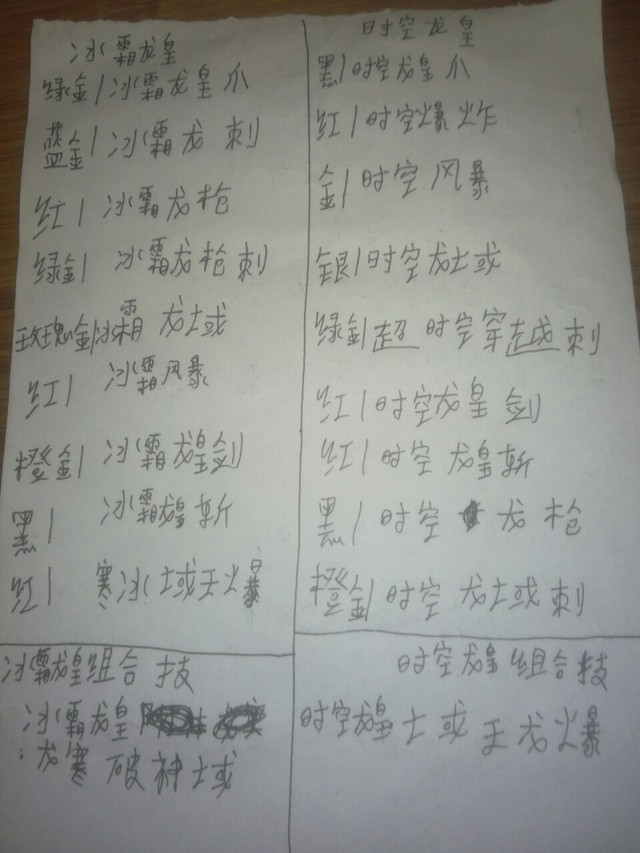 冰霜龙皇
绿金|冰霜龙皇爪
蓝金|冰霜龙刺
红|冰霜龙枪
绿金|冰霜龙枪刺
玫瑰金|冰霜龙士或
红|冰霜风暴
橙金|冰霜龙皇剑
黑|冰霜龙皇斩
红|寒冰士或天火暴
冰霜龙皇组合技
冰霜龙皇
龙寒破神士或
时空龙皇
黑|时空龙皇爪
红|时空爆炸
金|时空风暴
银|时空龙士或
绿金|超时空穿越刺
红|时空龙皇剑
红|时空龙皇斩
黑|时空龙枪
橙金|时空龙士或刺
时空龙皇组合技
时空龙皇士或天龙爆